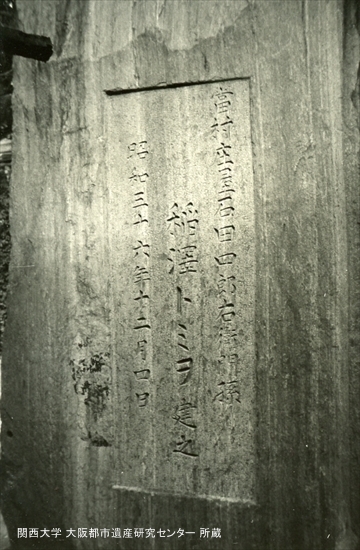 當村庄屋石田四郎右衛門孫
稲澤トミヲ建之
昭和三十六年十二月四日
関西大学 大阪都市遺産研究センター 所蔵